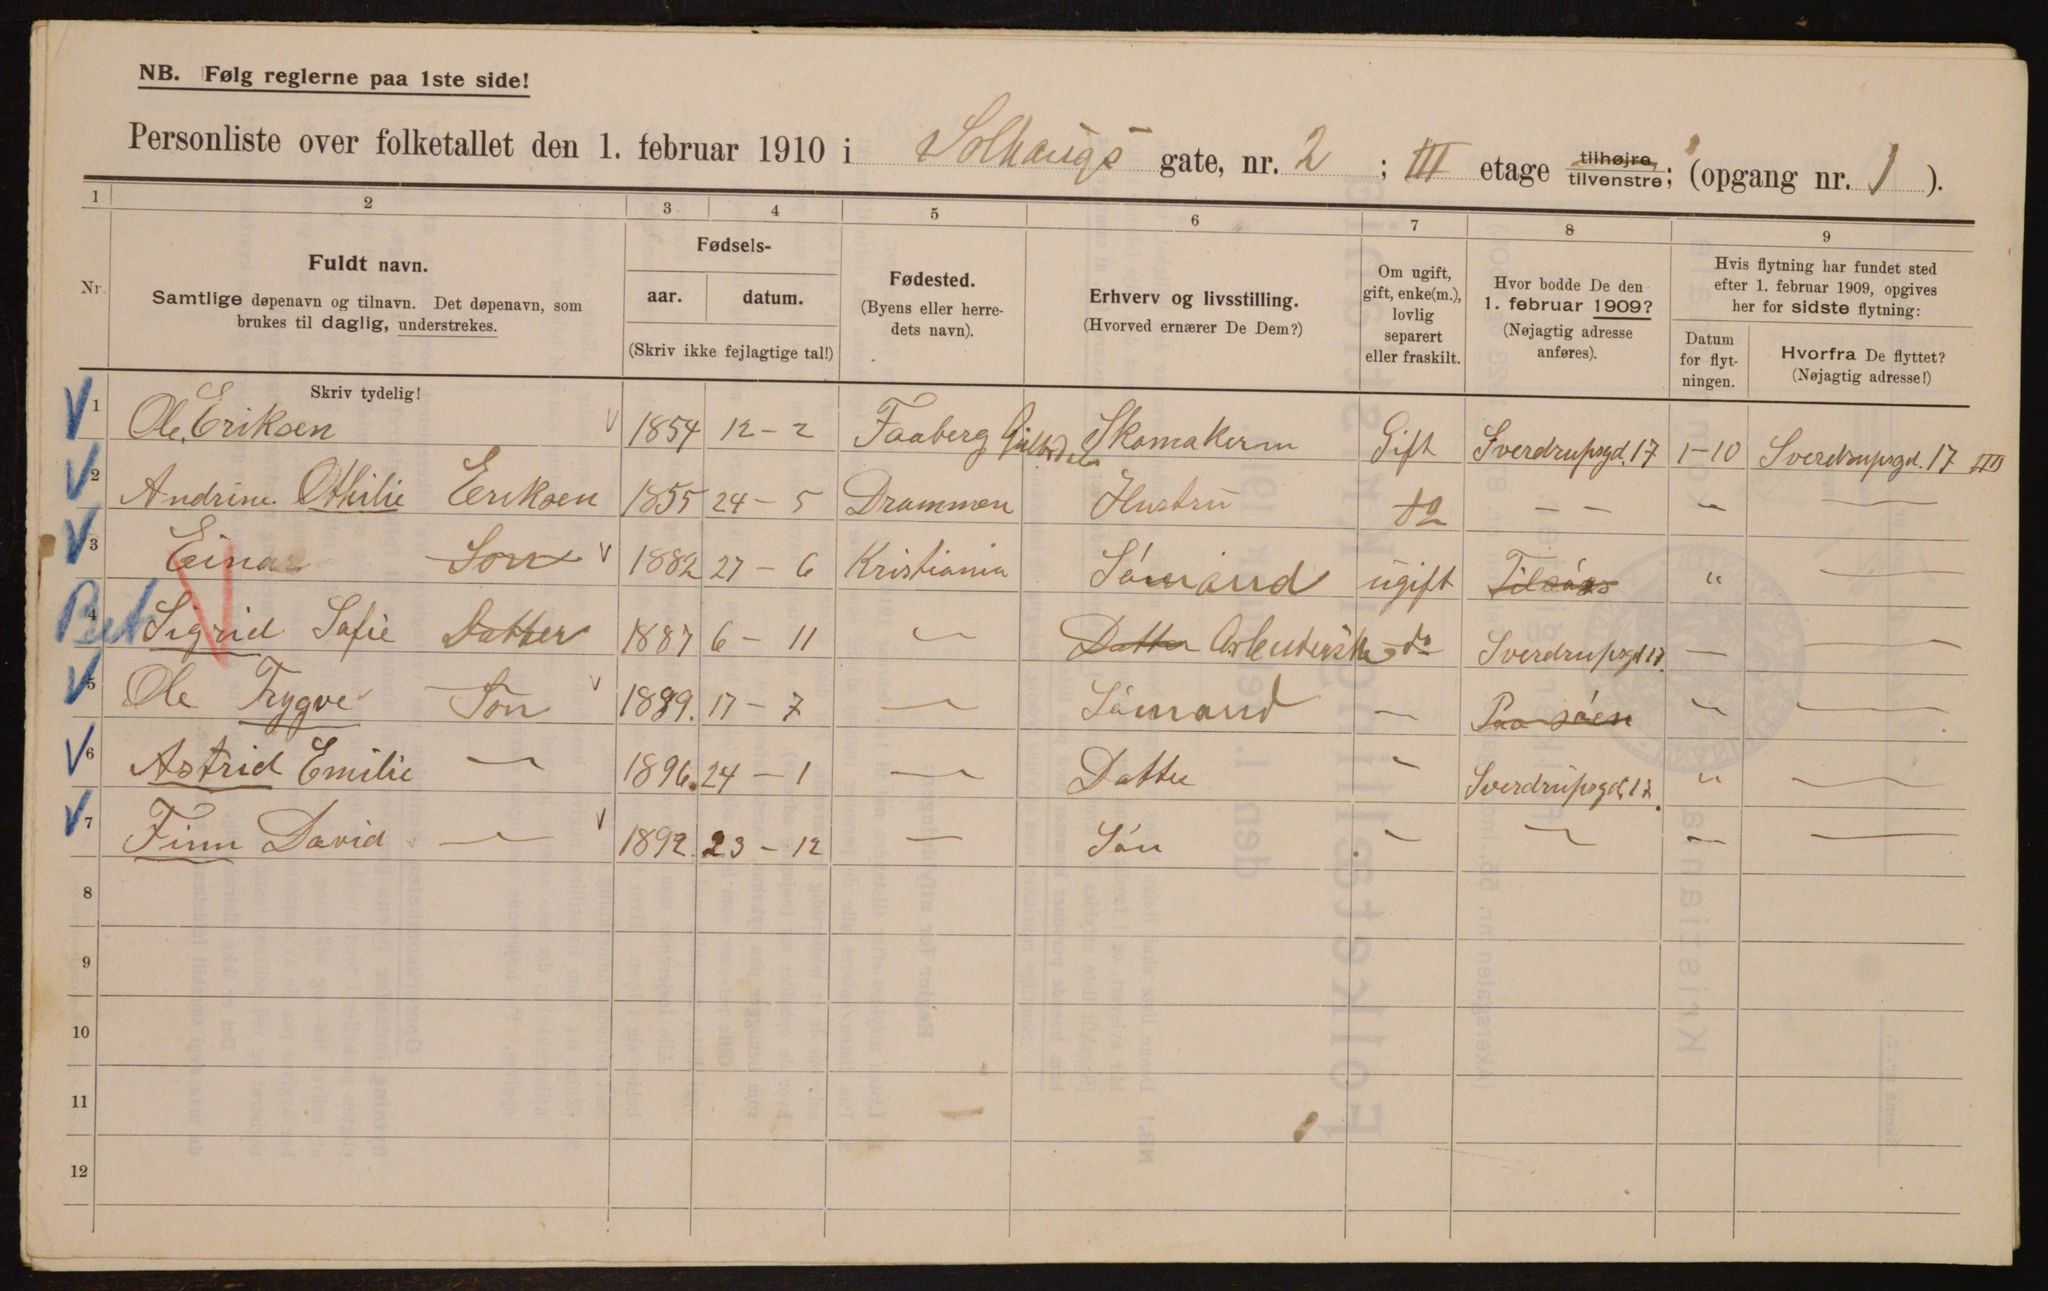 NB. Følg reglerne paa 1ste side!
Personliste over folketallet den 1. februar 1910 i Solhaugs gate, nr. 2 ; III etage tilhøjre tilvenstre; (opgang nr. 1 ).
1 2 3 4 5 6 7 8 9
Nr.
Fuldt navn.
Samtlige døpenavn og tilnavn. Det døpenavn, som
brukes til daglig, understrekes.
Skriv tydelig!
Fødsels-
aar. datum.
(Skriv ikke fejlagtige tal!)
Fødested.
(Byens eller herre-
dets navn).
Erhverv og livsstilling.
(Hvorved ernærer De Dem?)
Om ugift,
gift, enke(m.),
lovlig
separert
eller fraskilt.
Hvor bodde De den
1. februar 1909?
(Nøjagtig adresse
anføres).
Hvis flytning har fundet sted
efter 1. februar 1909, opgives
her for sidste flytning:
Datum
for flyt-
ningen.
Hvorfra De flyttet?
(Nøjagtig adresse!)
V 1 Ole Eriksen V 1854 12 – 2 Faaberg Gulbrdalen Skomakerm Gift Sverdrupsgd. 17 1–10 Sverdrupsgd. 17 III
V 2 Andrine Othilie Eriksen 1855 24 – 5 Drammen Hustru – –
V 3 Einar Søn V 1882 27 – 6 Kristiania Sömand ugift Tilsöes "
4 Sigrid Sofie Datter 1887 6 – 11 – Datter do Sverdrupsgd 17 – –
V 5 Ole Trygve Søn V 1889. 17 – 7 – Sömand – Paa söen " –
V 6 Astrid Emilie – 1896. 24 – 1 – Datter " Sverdrupsgd. 17. " –
V 7 Finn David – V 1892. 23 – 12 – Sön " – – –
8
9
10
11
12